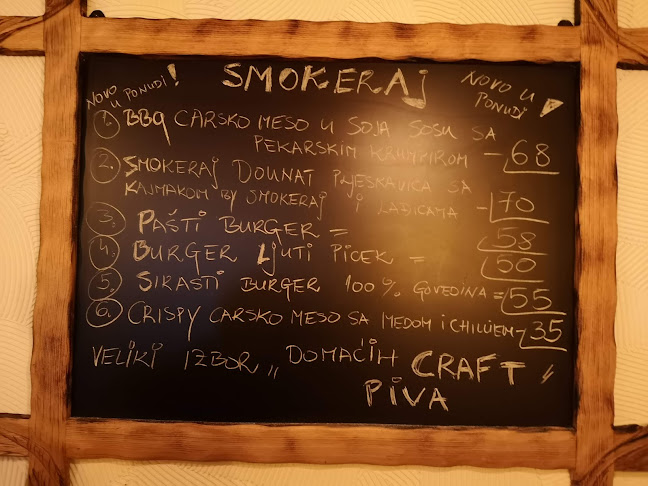 NOVO U PONUDI!
SMOKERAJ
NOVO U PONUDI!
1. BBQ CARSKO MESO U SOJA SOSU SA
PEKARSKIM KRUMPIROM - 68
2. SMOKERAJ DOUNAT PLJESKAVICA SA
KAJMAKOM BY SMOKERAJ I LAĐICAMA - 70
3. PAŠTI BURGER = 58
4. BURGER LJUTI PICEK = 50
5. SIRASTI BURGER 100% GOVEDINA = 55
6. CRISPY CARSKO MESO SA MEDOM I CHILIJEM - 35
VELIKI IZBOR „DOMAĆIH CRAFT"
PIVA